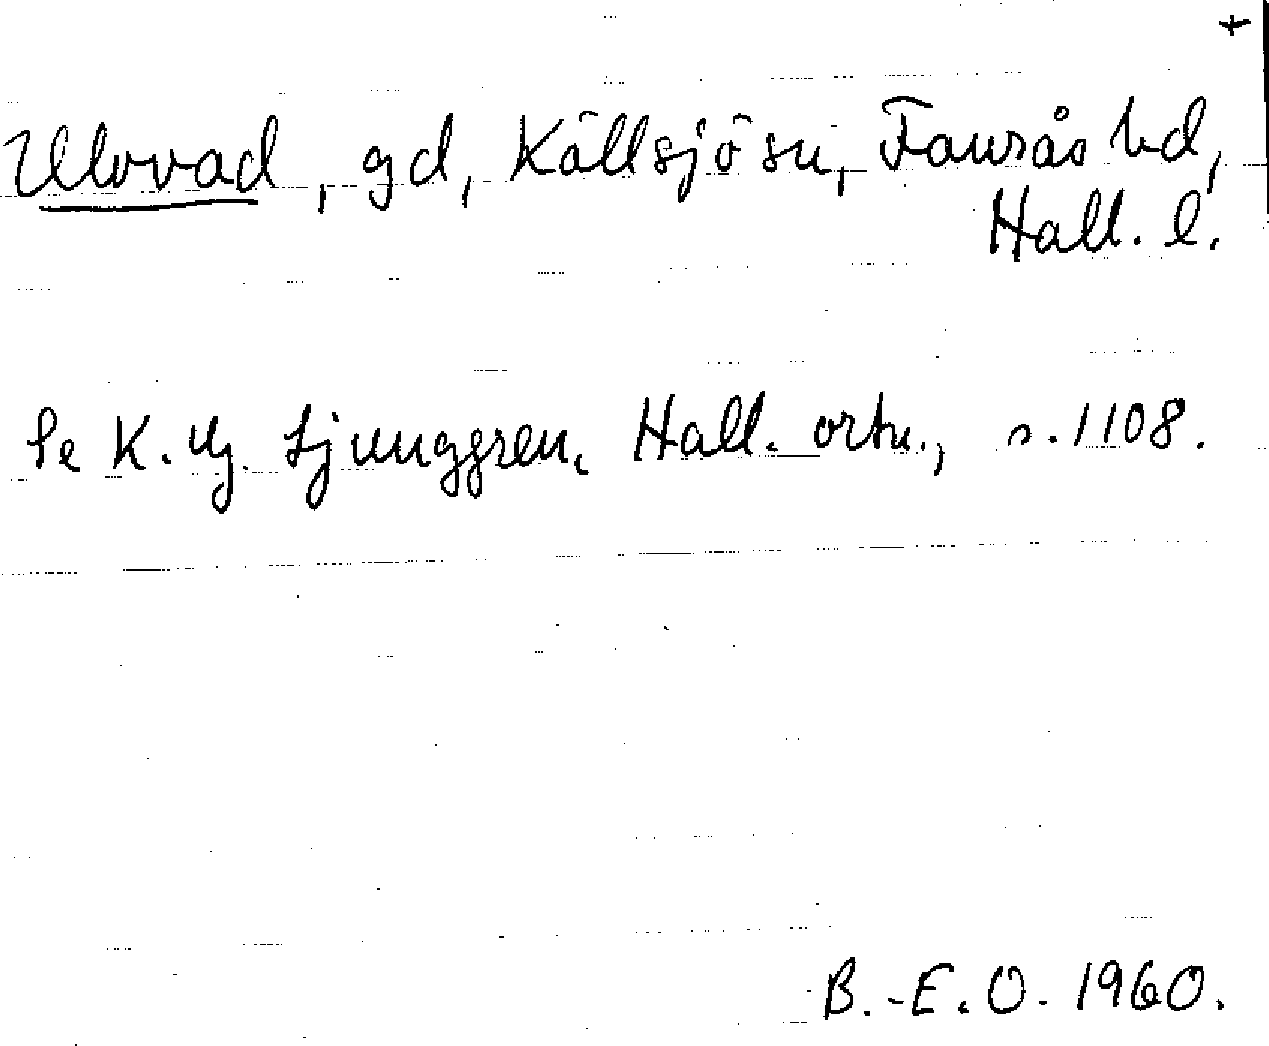 +
Ulvvad, gd, Källsjö sn, Faurås hd,
Hall. l.
Se K. Hj. Ljunggren, Hall. ortn., s. 1108.
B.-E. O. 1960.